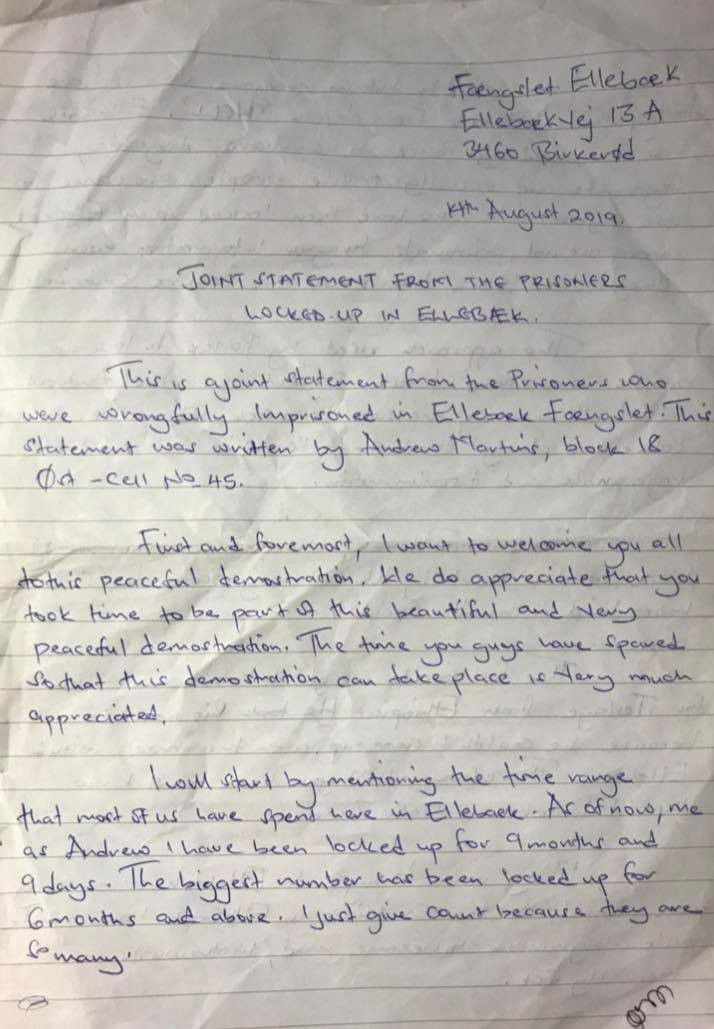 Foengslet Elleboek
Elleboekvej 13 A
3460 Birkerød
August 2019.
JOINT STATEMENT FROM THE PRISONERS
LOCKED-UP IN ELLEBÆK.
This is a joint statement from the Prisoners who
were wrongfully Imprisoned in Elleboek Foengslet. This
statement was written by Andrew Martins, block 18
Øst - Cell No 45.
First and foremost, I want to welcome you all
to this peaceful demostration. We do appreciate that you
took time to be part of this beautiful and very
peaceful demostration. The time you guys have spared
so that this demostration can take place is very much
appreciated.
I will start by mentioning the time range
that most of us have spend here in Elleboek. As of now, me
as Andrew I have been locked up for 9 months and
9 days. The biggest number has been locked up for
6 months and above. I just give count because they are
so many.